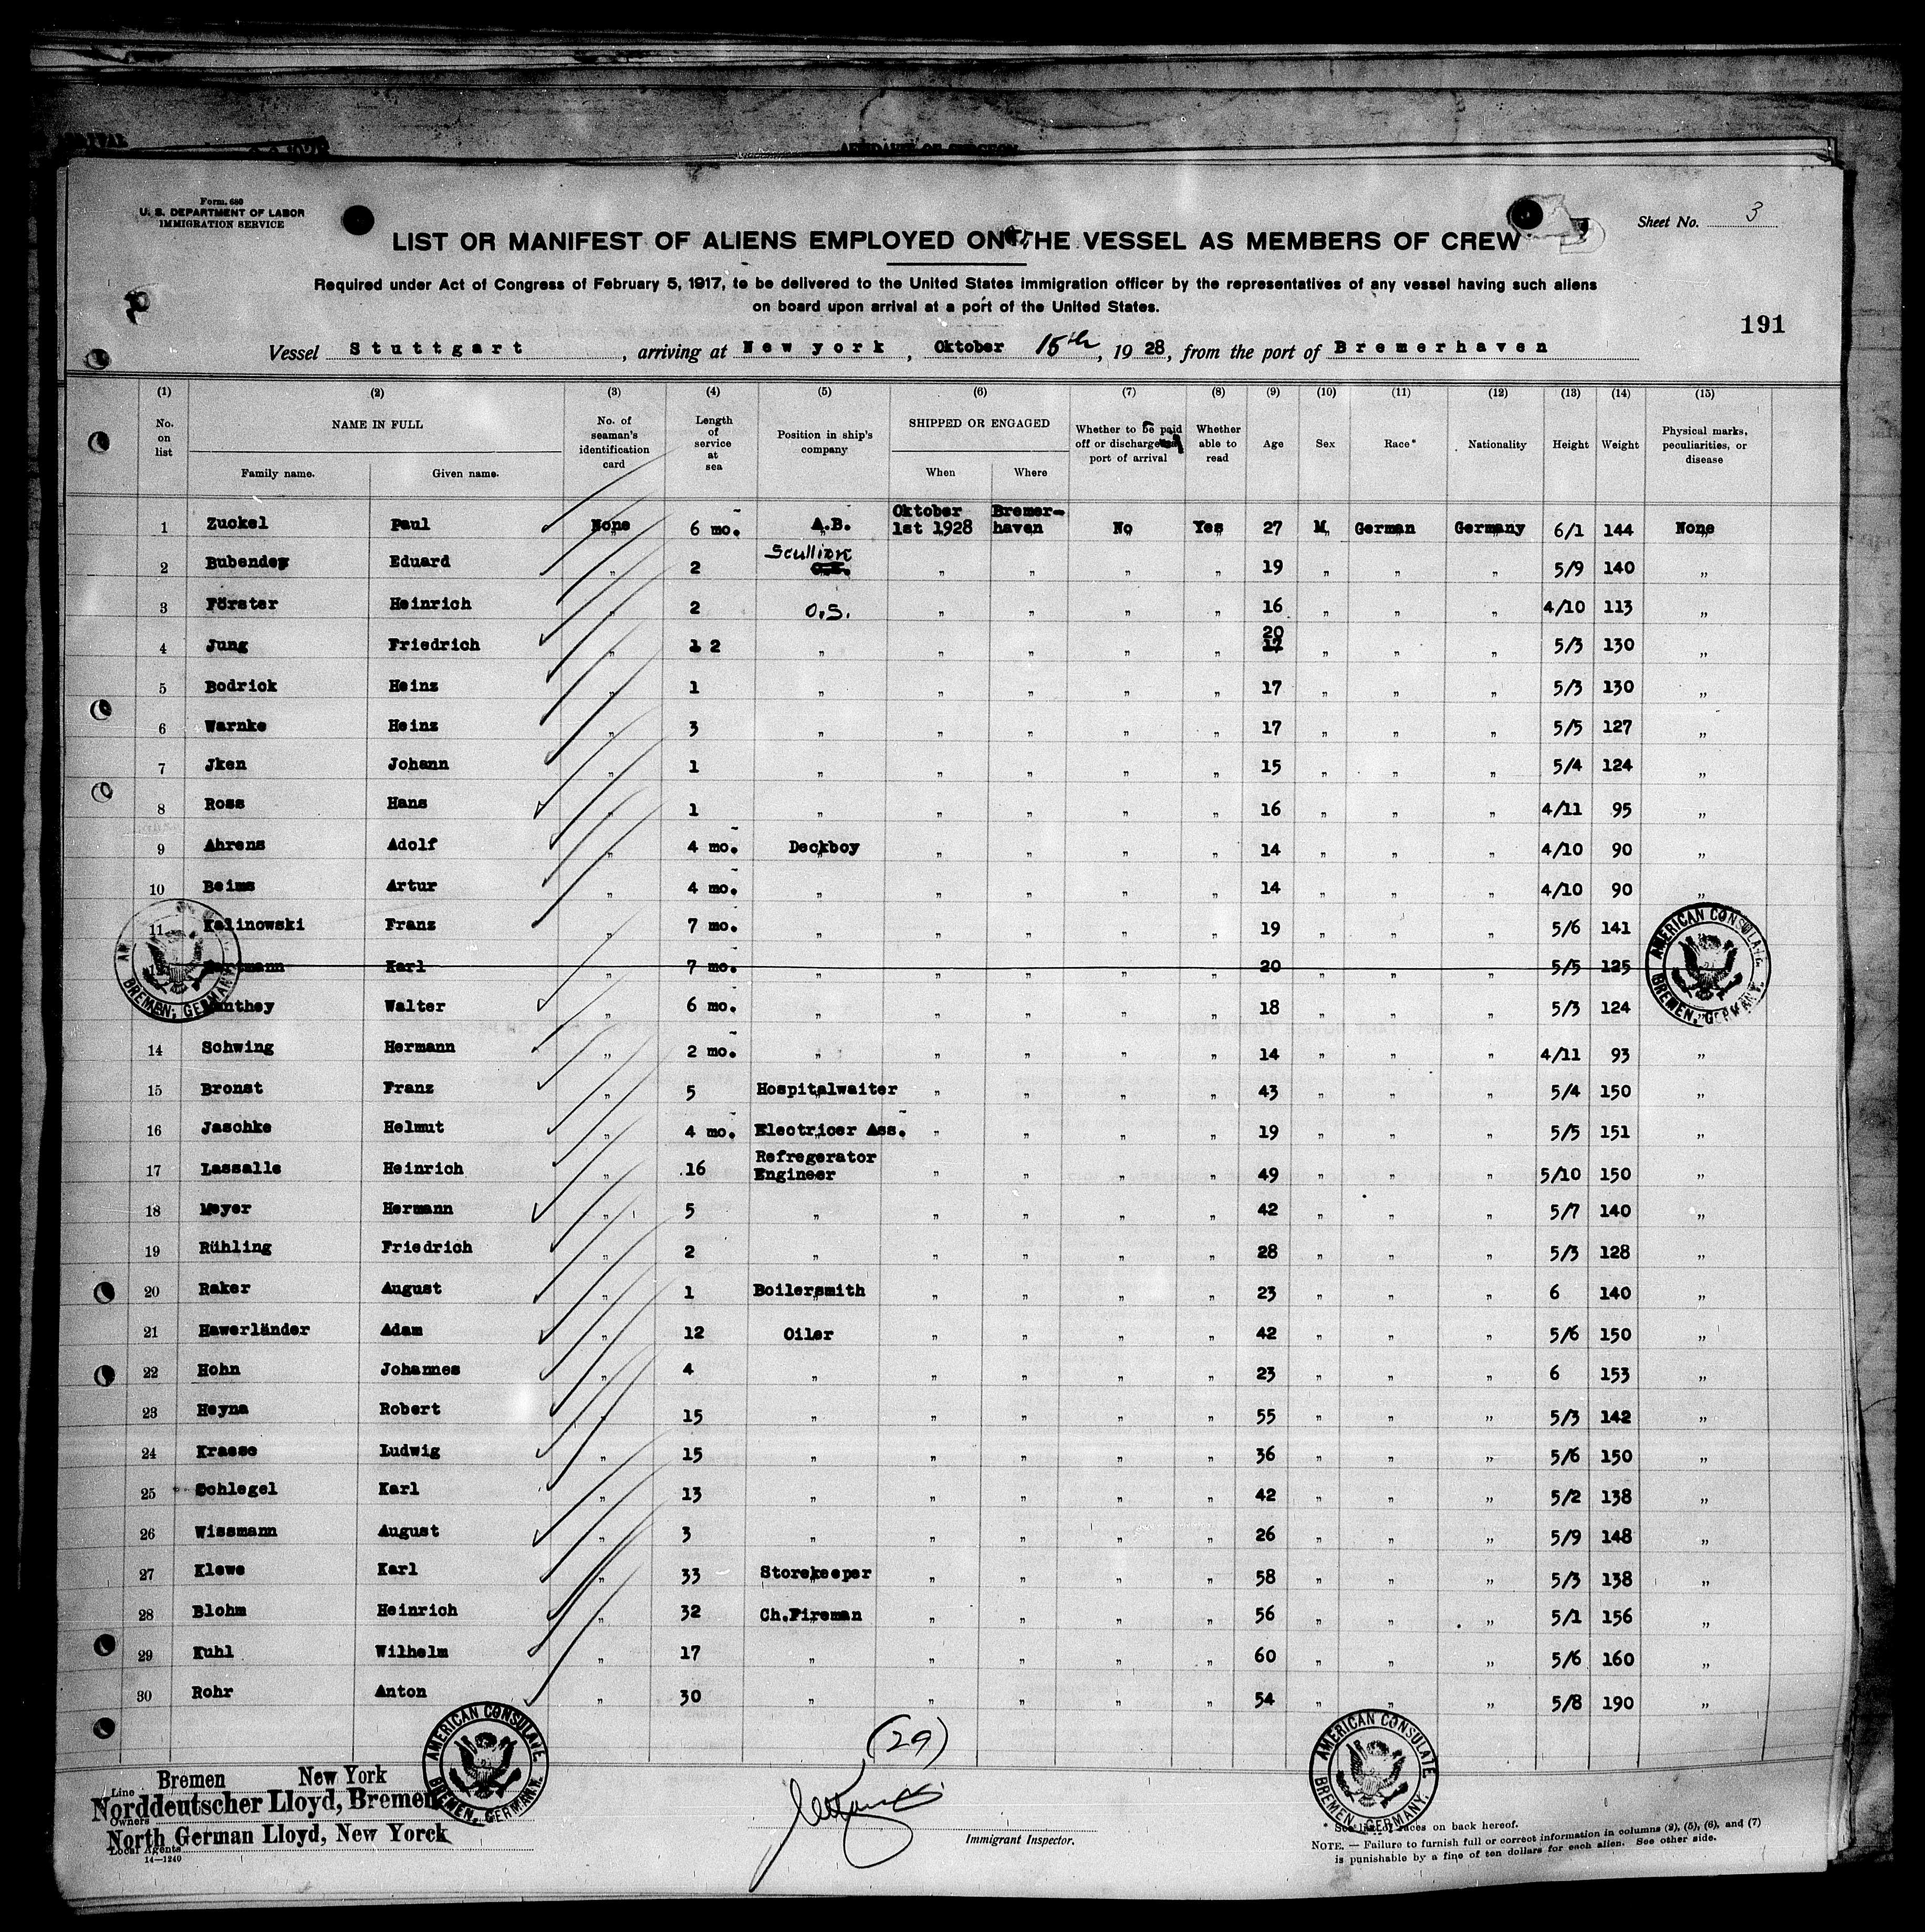 Form. 680
U. S. DEPARTMENT OF LABOR
IMMIGRATION SERVICE
Sheet No. 3
LIST OR MANIFEST OF ALIENS EMPLOYED ON THE VESSEL AS MEMBERS OF CREW
Required under Act of Congress of February 5, 1917, to be delivered to the United States immigration officer by the representatives of any vessel having such aliens
on board upon arrival at a port of the United States.
191
Vessel Stuttgart, arriving at New york, Oktober 15th, 1928, from the port of Bremerhaven
(1) (2) (3) (4) (5) (6) (7) (8) (9) (10) (11) (12) (13) (14) (15)
No. on list NAME IN FULL Family name. Given name. No. of seaman's identification card Length of service at sea Position in ship's company SHIPPED OR ENGAGED When Where Whether to be paid off or discharged port of arrival Whether able to read Age Sex Race* Nationality Height Weight Physical marks, peculiarities, or disease
1 Zuckel Paul None 6 mo. A.B. Oktober 1st 1928 Bremer-haven No Yes 27 M German Germany 6/1 144 None
2 Bubendey Eduard " 2 Scullion " " " " 19 " " " 5/9 140 "
3 Förster Heinrich " 2 O.S. " " " " 16 " " " 4/10 113 "
4 Jung Friedrich " 1 2 " " " " " 20 17 " " " 5/3 130 "
5 Bodrick Heinz " 1 " " " " " 17 " " " 5/3 130 "
6 Warnke Heinz " 3 " " " " " 17 " " " 5/5 127 "
7 Jken Johann " 1 " " " " " 15 " " " 5/4 124 "
8 Ross Hans " 1 " " " " " 16 " " " 4/11 95 "
9 Ahrens Adolf " 4 mo. Deckboy " " " " 14 " " " 4/10 90 "
10 Beims Artur " 4 mo. " " " " " 14 " " " 4/10 90 "
11 Kalinowski Franz " 7 mo. " " " " " 19 " " " 5/6 141
Karl " 7 mo. " " " " " 20 " " " 5/5 125
Walter " 6 mo. " " " " " 18 " " " 5/3 124 "
14 Schwing Hermann " 2 mo. " " " " " 14 " " " 4/11 93 "
15 Bronst Franz " 5 Hospitalwaiter " " " " 43 " " " 5/4 150 "
16 Jaschke Helmut " 4 mo. Electricer Ass. " " " " 19 " " " 5/5 151 "
17 Lassalle Heinrich " 16 Refregerator Engineer " " " " 49 " " " 5/10 150 "
18 Meyer Hermann " 5 " " " " " 42 " " " 5/7 140 "
19 Rühling Friedrich " 2 " " " " " 28 " " " 5/3 128 "
20 Raker August " 1 Boilersmith " " " " 23 " " " 6 140 "
21 Hawerländer Adam " 12 Oiler " " " " 42 " " " 5/6 150 "
22 Hohn Johannes " 4 " " " " " 23 " " " 6 153 "
23 Heyna Robert " 15 " " " " " 55 " " " 5/3 142 "
24 Krasse Ludwig " 15 " " " " " 36 " " " 5/6 150 "
25 Schlegel Karl " 13 " " " " " 42 " " " 5/2 138 "
26 Wissmann August " 3 " " " " " 26 " " " 5/9 148 "
27 Klewe Karl " 33 Storekeeper " " " " 58 " " " 5/3 138 "
28 Blohm Heinrich " 32 Ch.Fireman " " " " 56 " " " 5/1 156 "
29 Kuhl Wilhelm " 17 " " " " " 60 " " " 5/6 160 "
30 Rohr Anton " 30 " " " " " 54 " " " 5/8 190 "
AMERICAN CONSULATE BREMEN, GERMANY.
AMERICAN CONSULATE BREMEN, GERMANY.
AMERICAN CONSULATE BREMEN, GERMANY.
(29)
Line Bremen New York
Norddeutscher Lloyd, Bremen
Owners
North German Lloyd, New Yorck
Local Agents
14—1240
Immigrant Inspector.
* See list of races on back hereof.
NOTE. — Failure to furnish full or correct information in columns (2), (5), (6), and (7)
is punishable by a fine of ten dollars for each alien. See other side.